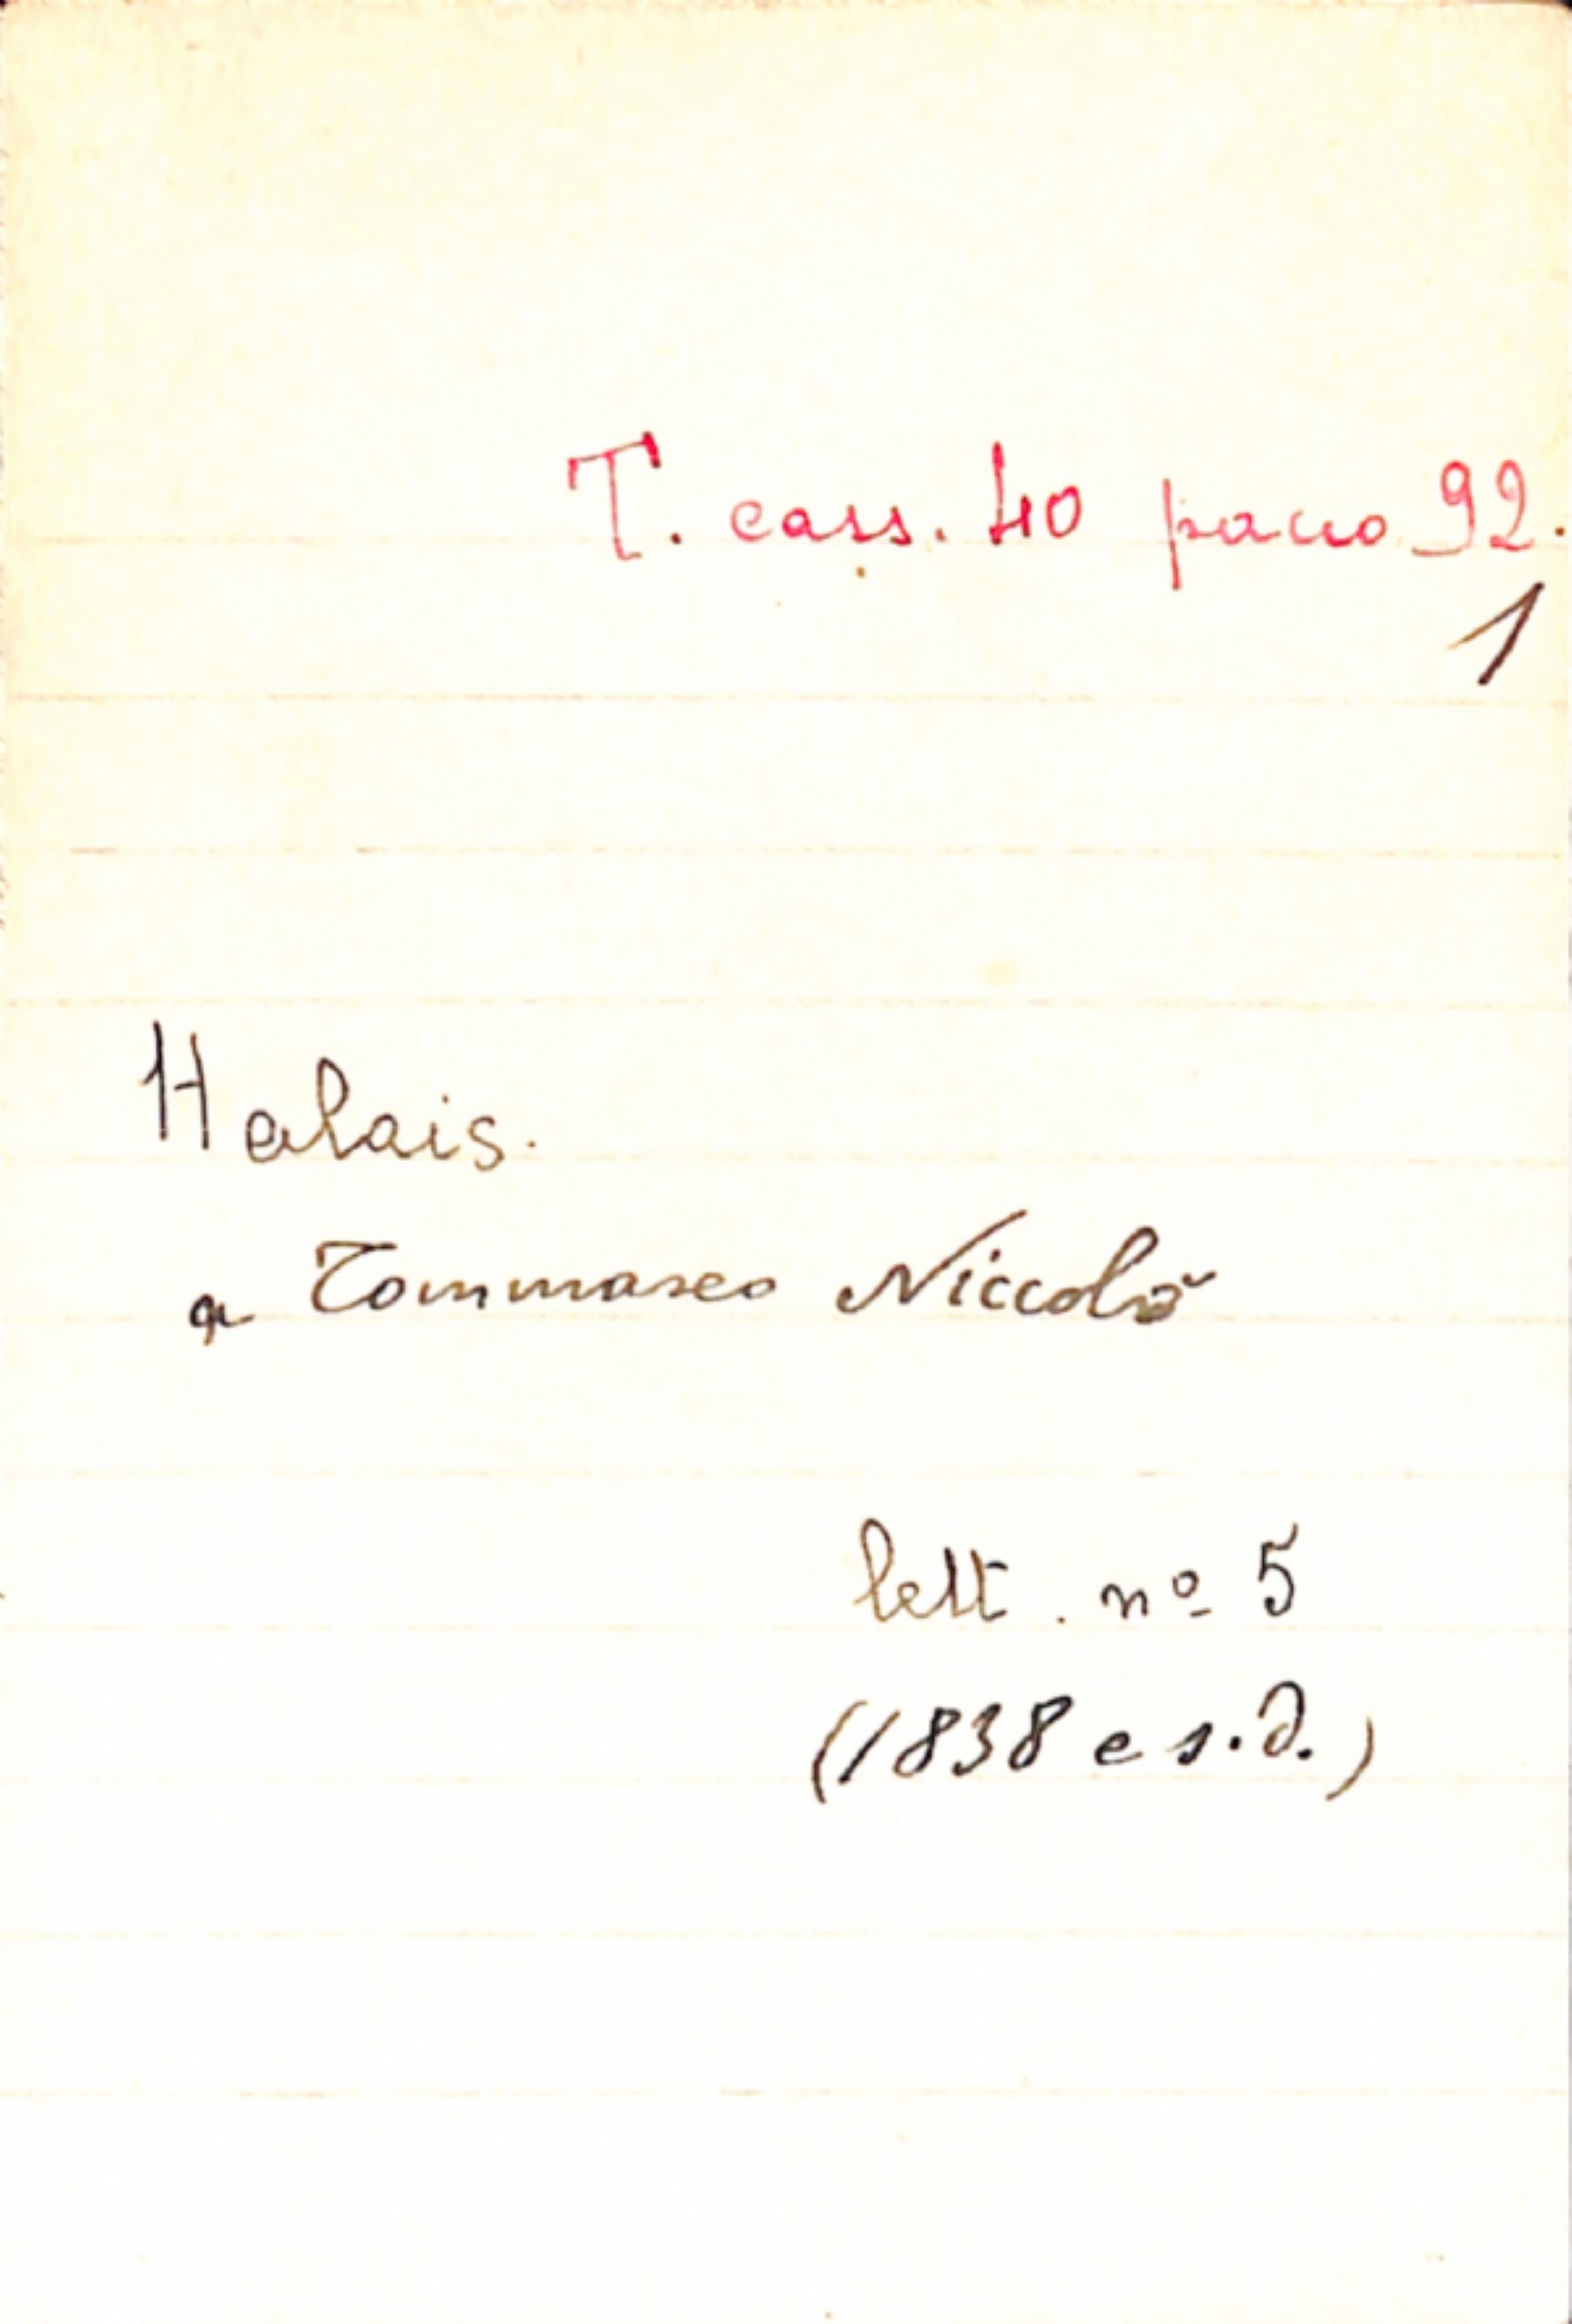 T. cass. 40 pacco 92.
1
Halais.
a Tommaseo Niccolò
lett. nº 5
(1838 e s.d.)